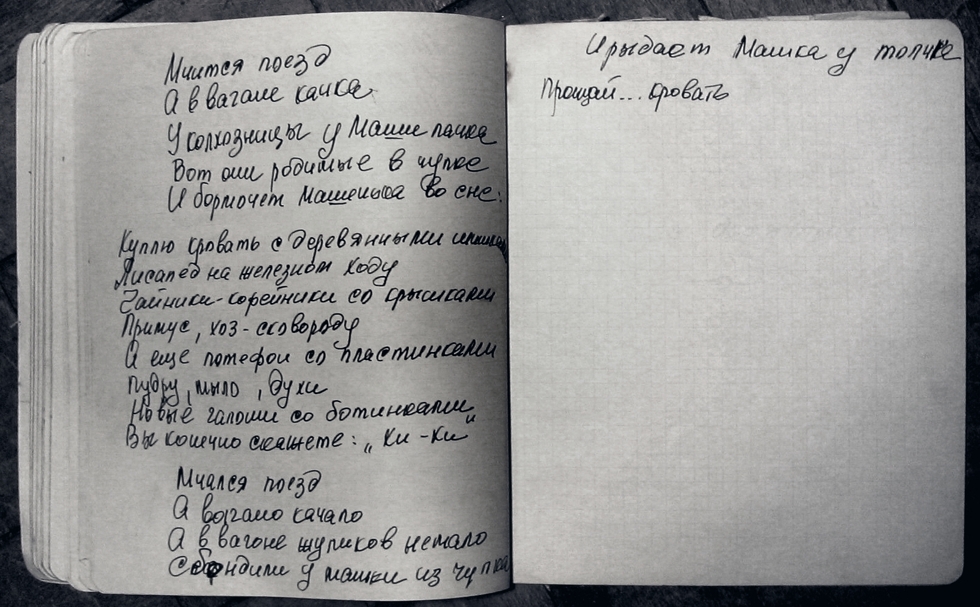 Мчится поезд
А в вагане качка
У колхозницы у Маши пачка
Вот они родимые в чулке
И бормочет Машенька во сне:
Куплю кровать с деревянными
Лисапед на железном ходу
Чайники-кофейники со крысиками
Примус, хоз-сковороду
А еще потефон со пластинками
Пудру, мыло, духи
Новые галоши со ботинками
Вы конечно скажете: „Хи-Хи"
Мчался поезд
А вагано качало
А в вагоне жуликов немало
Сбондили у машки из чулка
И рыдает Машка у толчка
Прощай... кровать